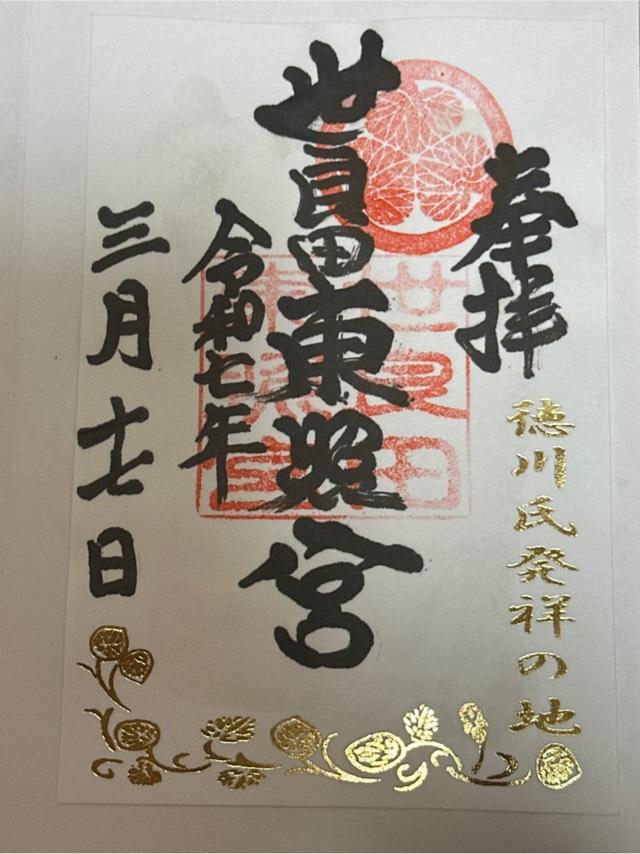 奉拝
徳川氏発祥の地
世良田東照宮
令和七年
三月十七日
世良田
東照宮